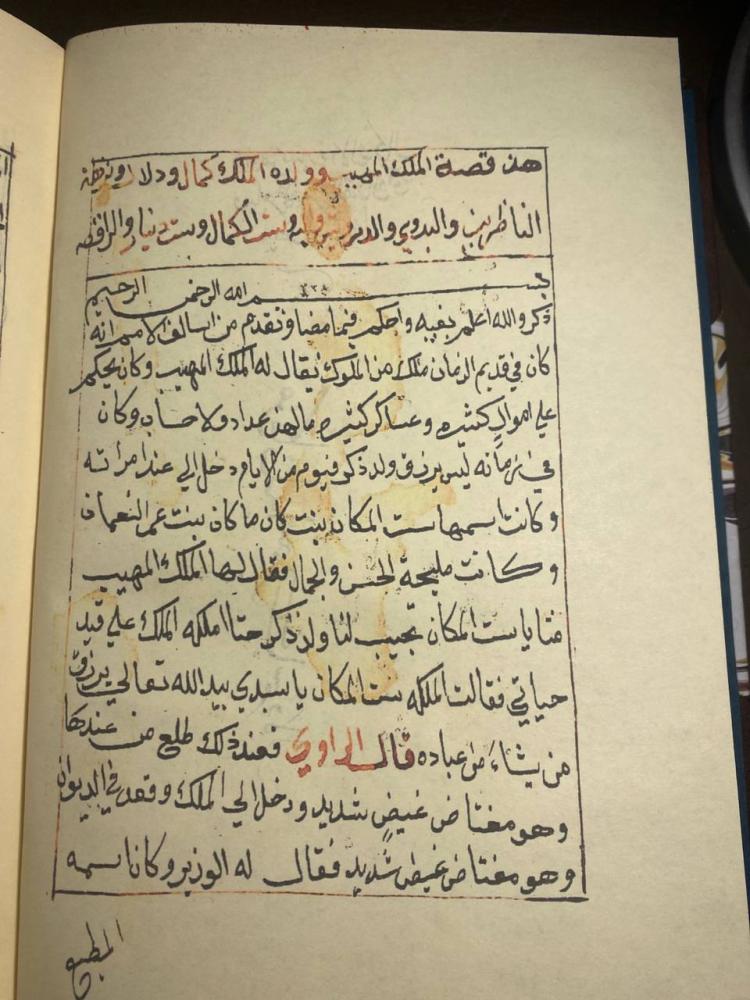 هذه قصة الملك المهيب وولده الملك كمال ودلال ونزهة
الناظرين والبدوي والدير وست الكمال وست دنيار والراقصه
بسم الله الرحمن الرحيم
ذكر والله اعلم بغيبه واحكم فيما مضا وتقدم من اسالف الامم انه
كان في قديم الزمان ملك من الملوك يقال له الملك المهيب وكان يحكم
علي اموال كثيره وعساكر كثيره مالهن عداد ولا حساب وكان
في زمانه ليس يرزق ولد ذكر فيوم من الايام دخل الي عند امراته
وكانت اسمها ست المكان بنت كان ما كان بنت عمر النعمان
وكانت مليحة الحسن والجمال فقال لها الملك المهيب
متا ياست المكان تجيب لنا ولد ذكر حتا املكه الملك علي قيد
حياتي فقالت الملكه ست المكان يا سيدي بيد الله تعالي يرزق
من يشاء من عباده قال الراوي فعند ذلك طلع من عندها
وهو مغتاض غيض شديد ودخل الي الملك وقعد في الديوان
وهو مغتاض غيض شديد فقال له الوزير وكان اسمه
المطيع